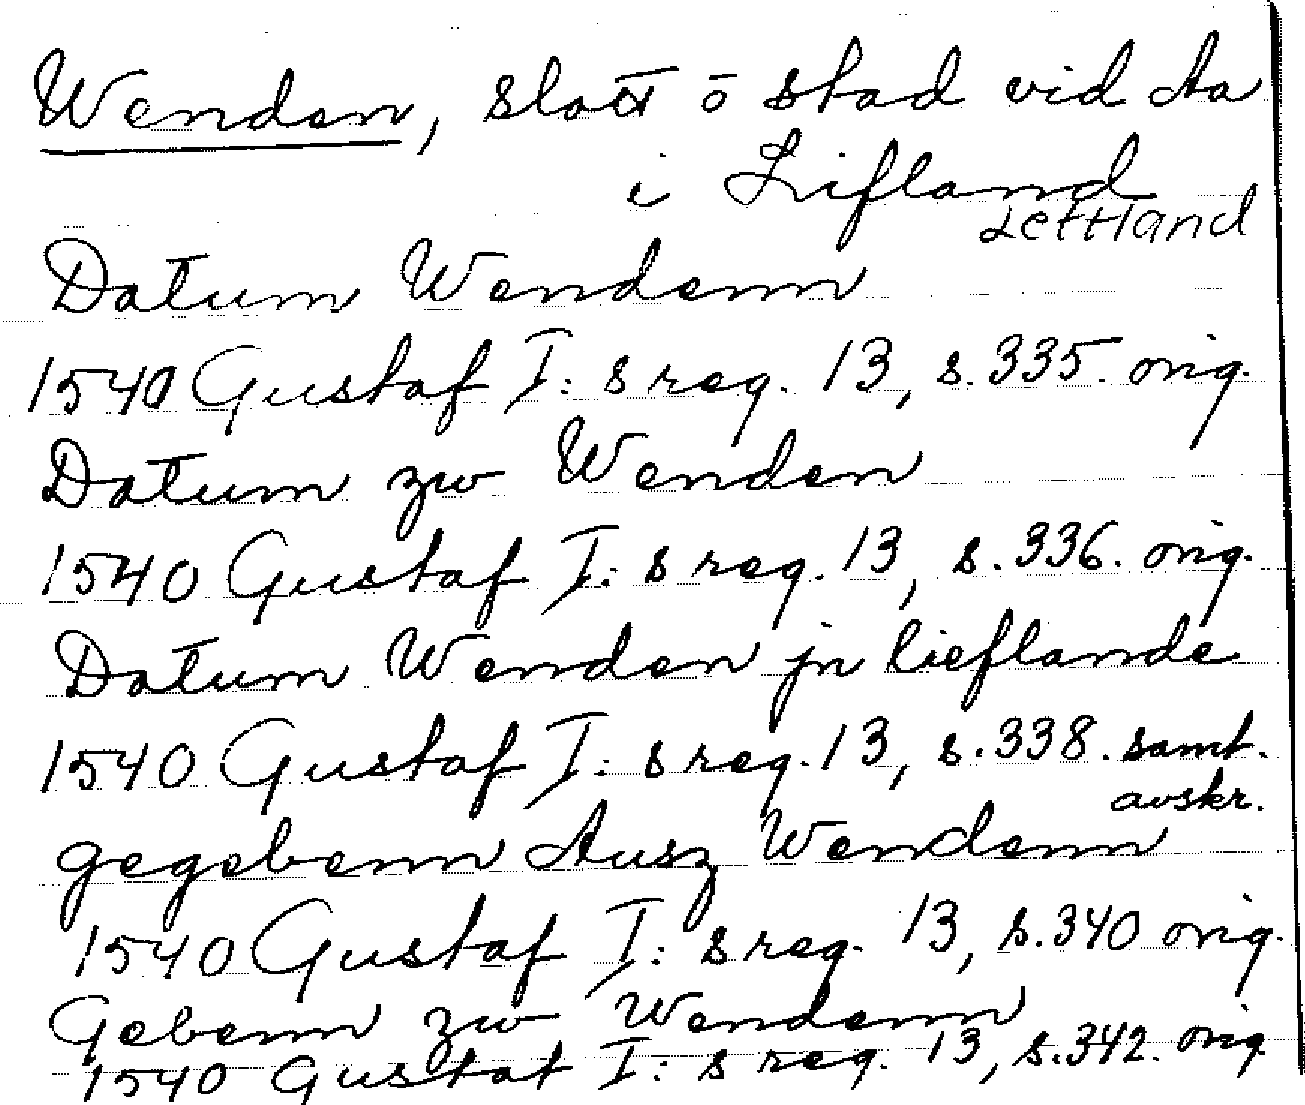 Wenden, slott o stad vid Aa
i Lifland
Lettland
Datum Wendenn
1540 Gustaf I: s reg. 13, s. 335. orig.
Datum zw Wenden
1540 Gustaf I: s reg. 13, s. 336. orig.
Datum Wenden jn lieflande
1540 Gustaf I: s reg. 13, s. 338. samt.
avskr.
gegebenn Ausz Wendenn
1540 Gustaf I: s reg. 13, s. 340 orig.
Gebenn zw Wendenn
1540 Gustaf I: s reg. 13, s. 342. orig